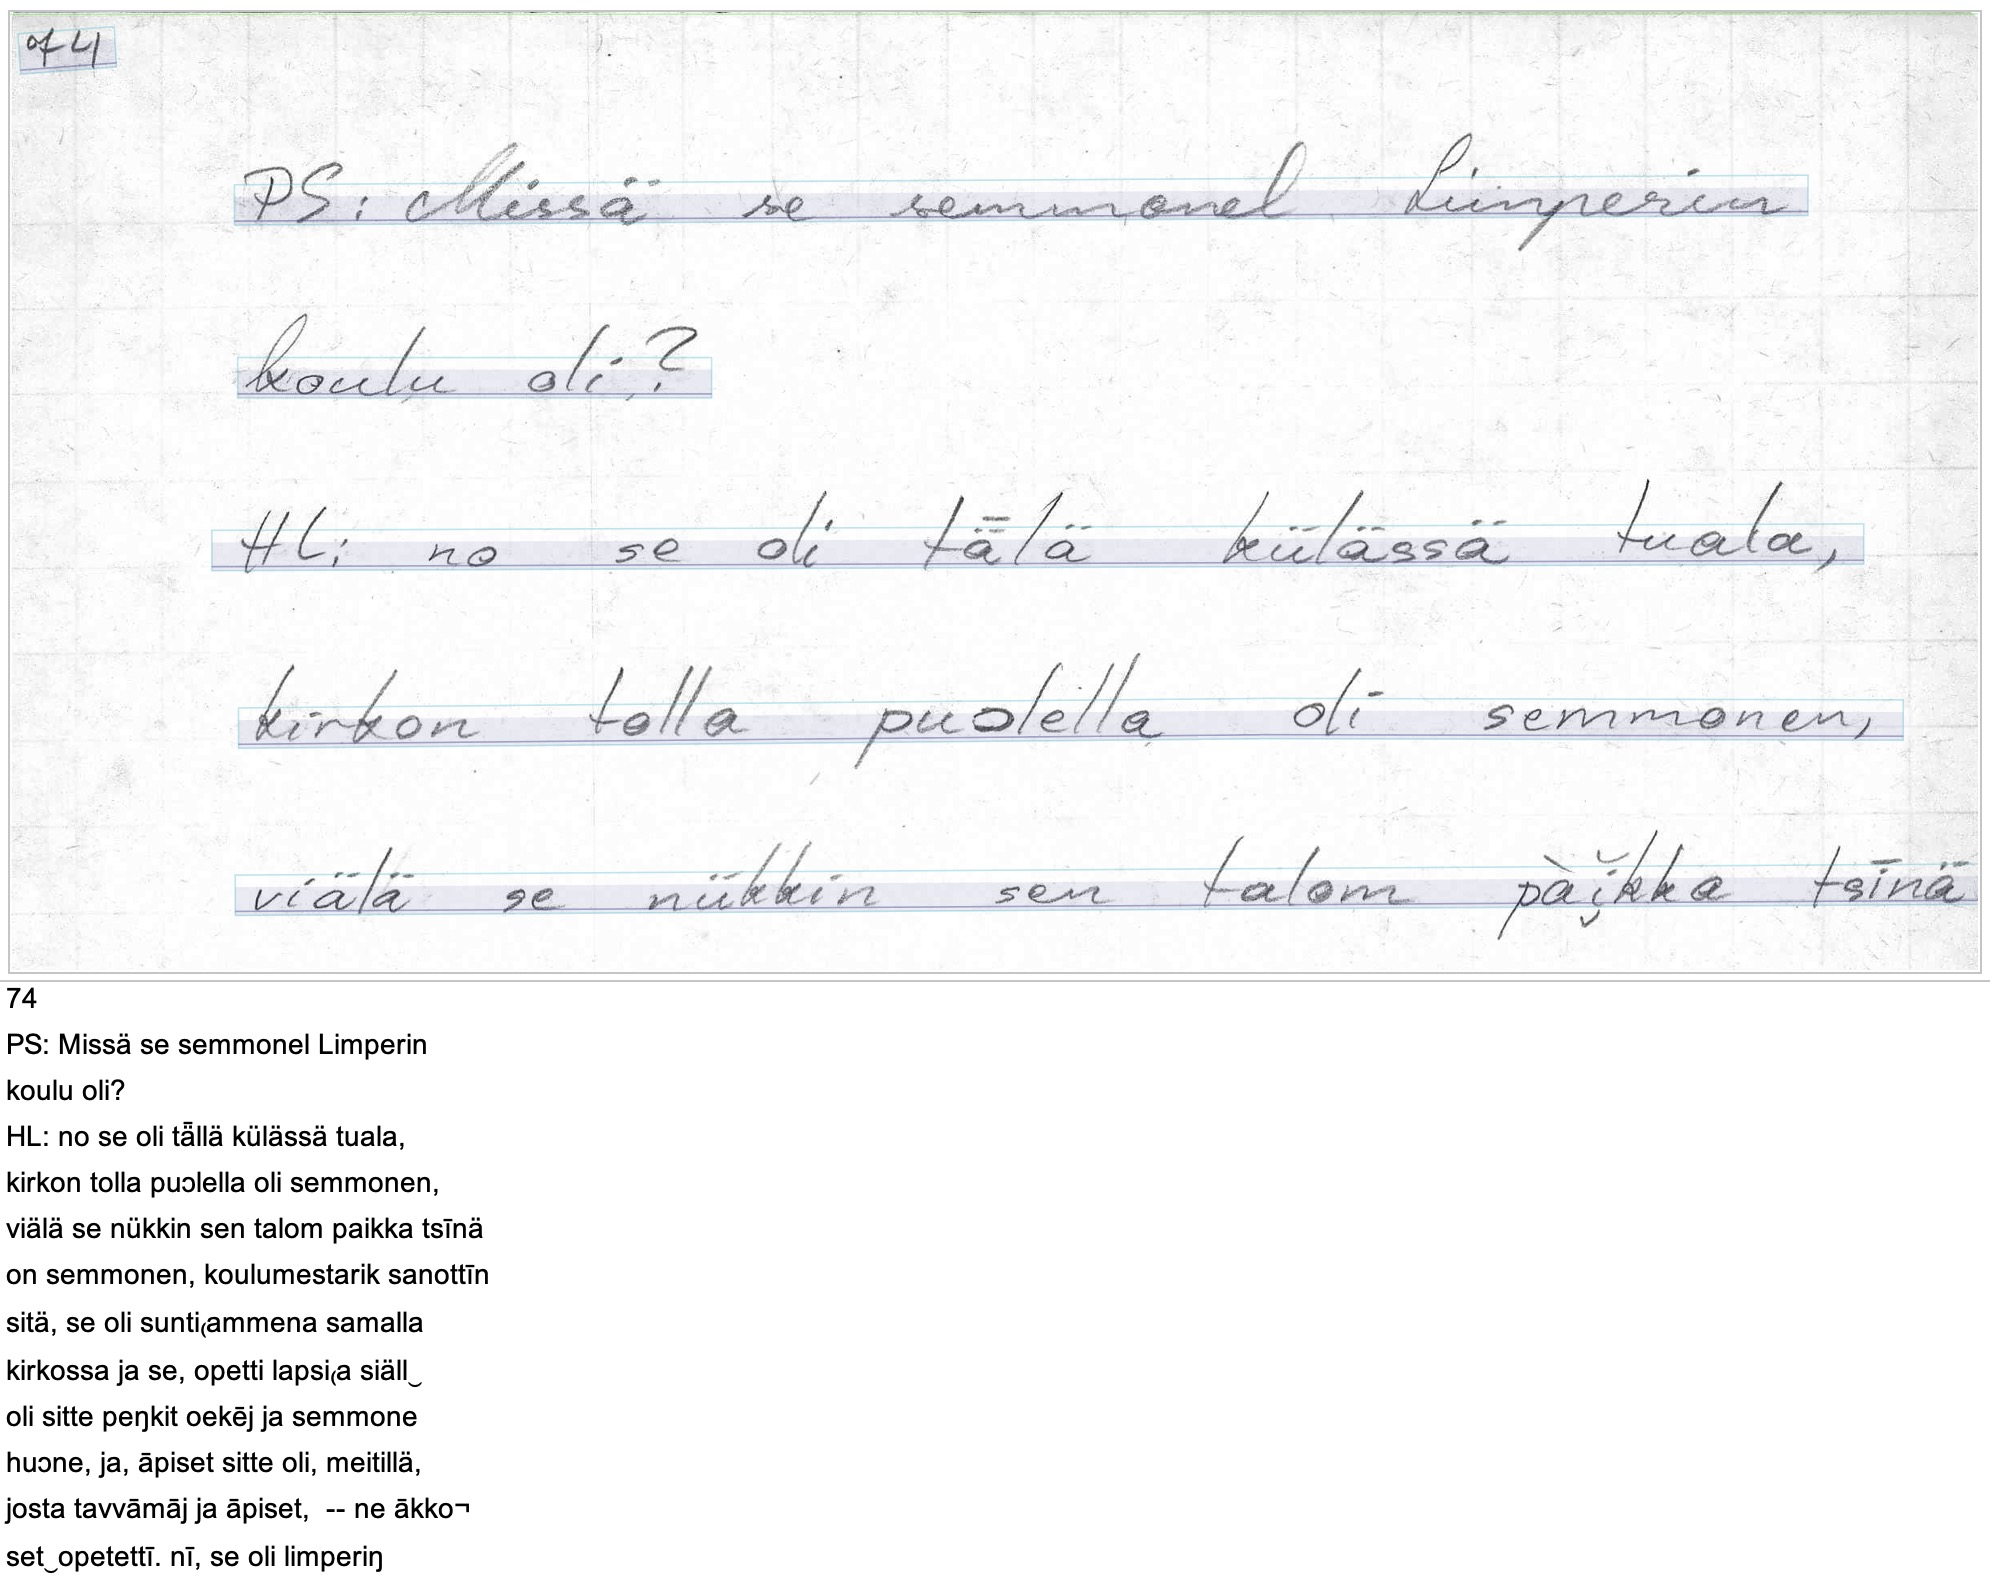 74
PS: Missä se semmonel Limperin
koulu oli?
HL: no se oli tǟlä külässä tuala,
kirkon tolla puolella oli semmonen,
viälä se nükkin sen talom pàĭ̮kka tsīnä
74
PS: Missä se semmonel Limperin
koulu oli?
HL: no se oli tǟllä külässä tuala,
kirkon tolla puɔlella oli semmonen,
viälä se nükkin sen talom paikka tsīnä
on semmonen, koulumestarik sanottīn
sitä, se oli sunti₍ammena samalla
kirkossa ja se, opetti lapsi₍a siäll‿
oli sitte peŋkit oekēj ja semmone
huɔne, ja, āpiset sitte oli, meitillä,
josta tavvāmāj ja āpiset,  -- ne ākko¬
set‿opetettī. nī, se oli limperiŋ